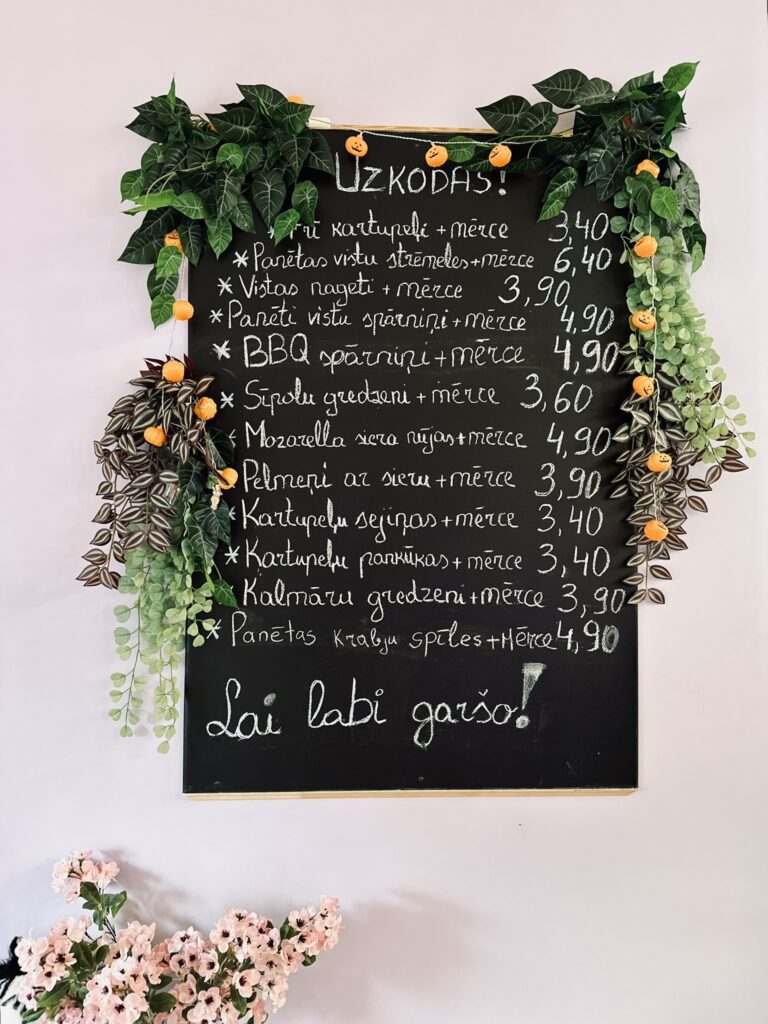 Uzkodas!
Frī kartupeļi + mērce 3,40
* Panētas vistu strēmeles + mērce 6,40
* Vistas nageti + mērce 3,90
* Panēti vistu spārniņi + mērce 4,90
* BBQ spārniņi + mērce 4,90
* Sīpolu gredzeni + mērce 3,60
* Mozarella siera nūjas + mērce 4,90
Pelmeņi ar sieru + mērce 3,90
* Kartupeļu sejiņas + mērce 3,40
* Kartupeļu pankūkas + mērce 3,40
Kalmāru gredzeni + mērce 3,90
* Panētas krabju spīles + mērce 4,90
Lai labi garšo!